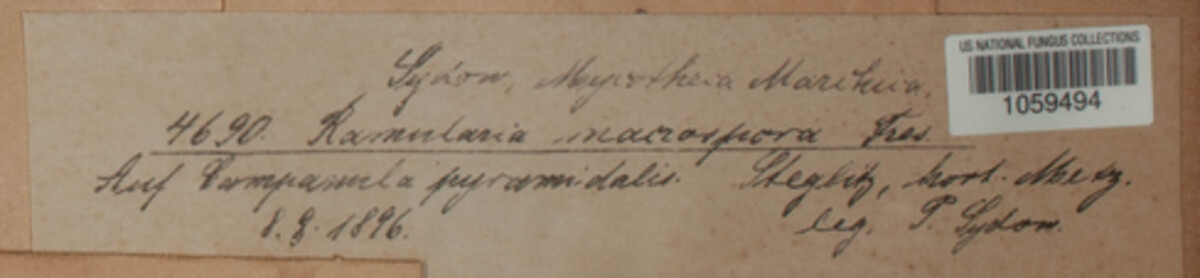 Sydow, Mycotheca Marchica.
US NATIONAL FUNGUS COLLECTIONS
1059494
4690. Ramularia macrospora Fres.
Auf Campanula pyramidalis. Steglitz, hort. Mesz.
8. 1896.
leg. P. Sydow.